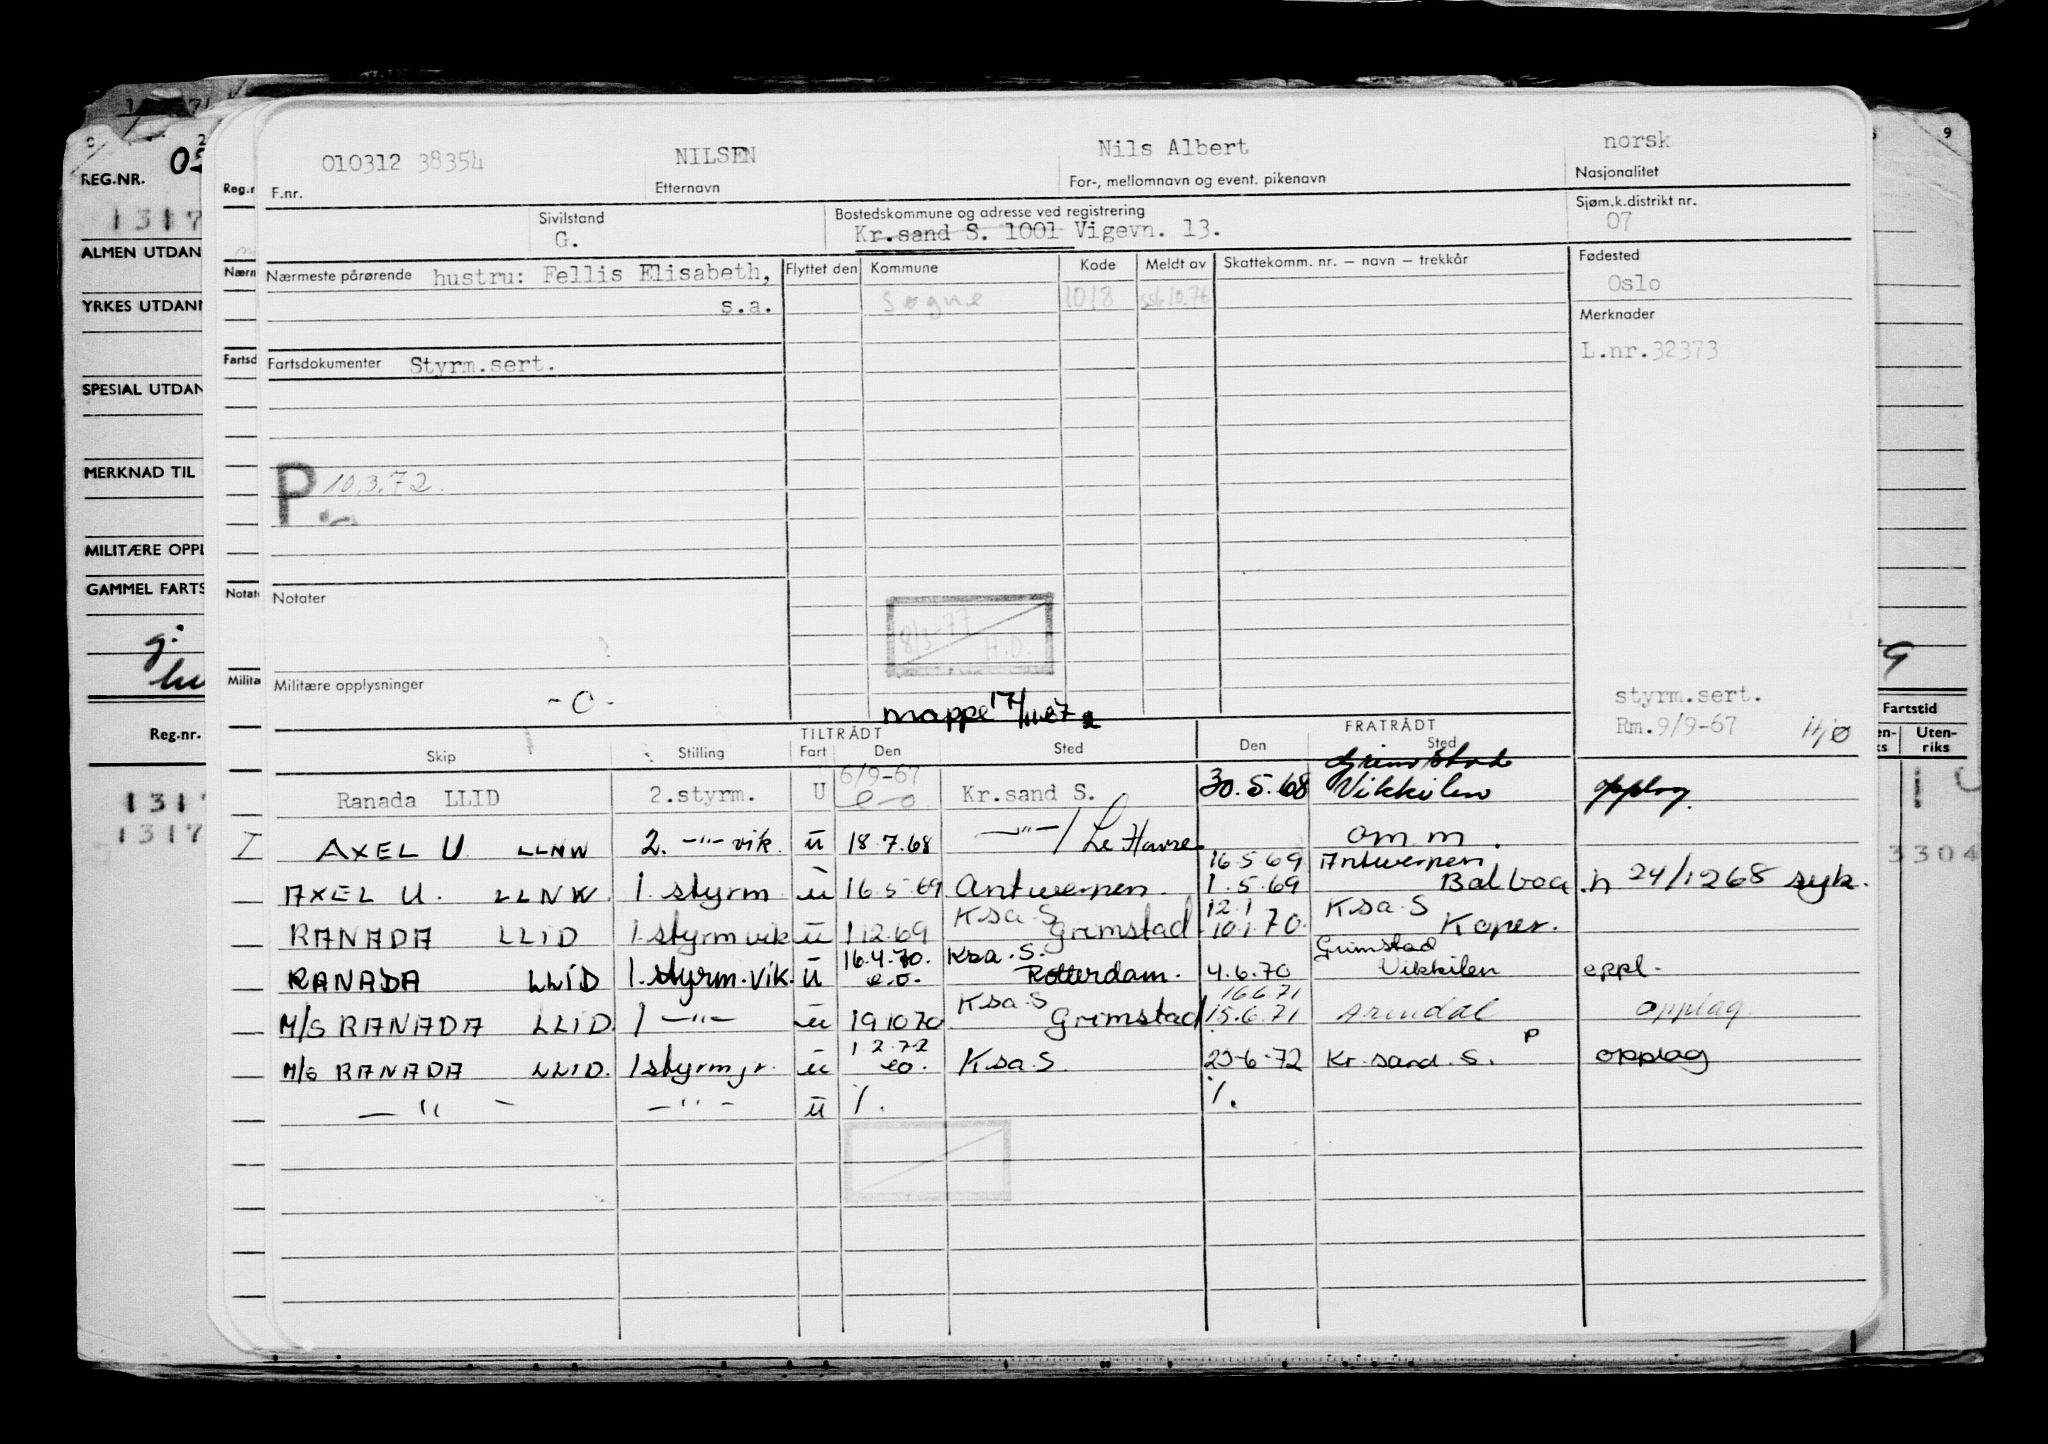 010312 38354 NILSEN Nils Albert norsk
F.nr. Etternavn For-, mellomnavn og event. pikenavn Nasjonalitet
Sivilstand Bostedskommune og adresse ved registrering Sjøm.k.distrikt nr.
G. Kr.sand S. 1001 Vigevn. 13. 07
Nærmeste pårørende hustru: Fellis Elisabeth, Flyttet den Kommune Kode Meldt av Skattekomm. nr. — navn — trekkår Fødested
s.a. Søgne 1018 ssb 10.76 Oslo
Merknader
Fartsdokumenter Styrm.sert. L.nr.32373
P 10.3.72.
Notater
8/3-77 H.D.
Militære opplysninger -0- styrm.sert.
mappe 17/11-87
Rm.9/9-67 Hjø
TILTRÅDT FRATRÅDT
Skip Stilling Fart Den Sted Den Sted
6/9-67 Grimstad
Ranada LLID 2.styrm. U e-o Kr.sand S. 30.5.68 Vikkilen opplag.
I AXEL U LLNW 2. -"- vik. u 18.7.68 -"-/ Le Havre om m.
16 5 69 Antwerpen
AXEL U. LLNW 1. styrm u 16.5.69 Antwerpen. 1.5.69 Balboa h 24/1268 syk.
Ksa.S 12.1 Ksa.S
RANADA LLID 1.styrm vik u 1 12.69 Grimstad 10.1.70. Koper.
16.4.70. Ksa.S. Grimstad
RANADA LLID 1.styrm.vik. u e.o. Rotterdam. 4.6.70 Vikkilen oppl.
Ksa.S 16.6.71
M/S RANADA LLID 1 -"- u 19 10 70 Grimstad 15.6.71 Arendal opplag.
1 2.72 P
M/S RANADA LLID. 1styrm jr. u eo. Ksa.S. 23-6-72 Kr.sand.S. opplag
-"- -"- u %. %.
REG.NR.
1317
ALMEN UTDAN
YRKES UTDANN
SPESIAL UTDAN
MERKNAD TIL
MILITÆRE OPPL
GAMMEL FARTS
Reg.nr.
1317
1317
Reg.n
Nærn
Fartsd
Notat
Milita
9
Fartstid
Uten-
riks
3304